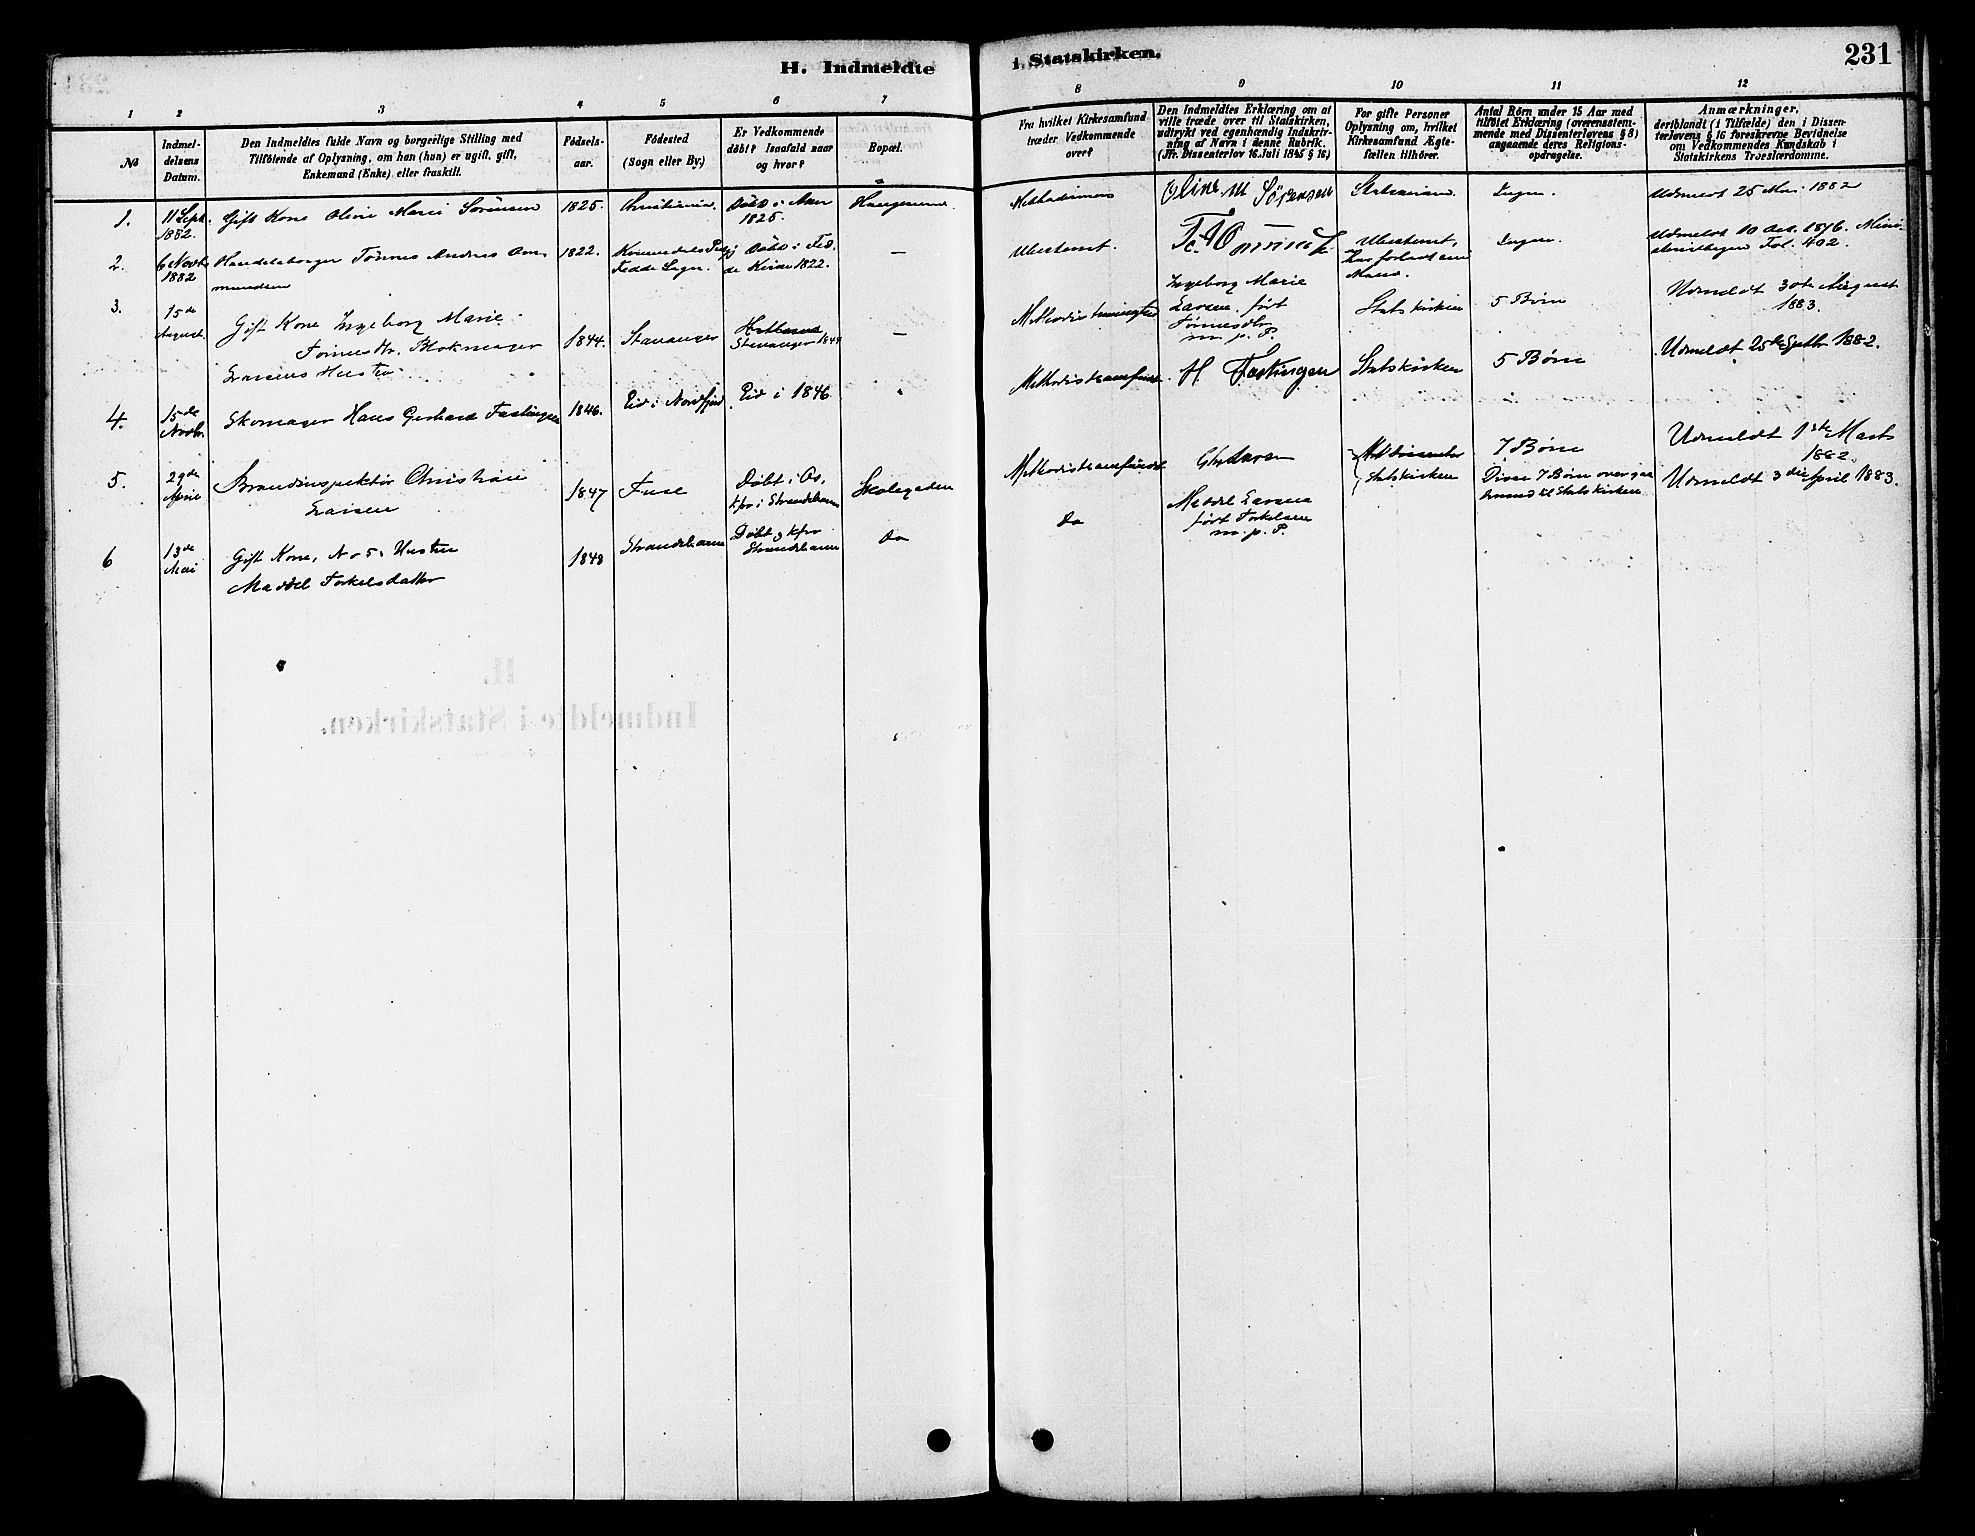 H. Indmeldte i Statskirken. 231
1 2 3 4 5 6 7 8 9 10 11 12
No
Indmel-
delsens
Datum.
Den Indmeldtes fulde Navn og borgerlige Stilling med
Tilföiende af Oplysning, om han (hun) er ugift, gift,
Enkemand (Enke) eller fraskilt.
Födsels-
aar.
Födested
(Sogn eller By.)
Er Vedkommende
döbt? Isaafald naar
og hvor?
Bopæl.
Fra hvilket Kirkesamfund
træder Vedkommende
over?
Den Indmeldtes Erklæring om at
ville træde over til Statskirken,
udtrykt ved egenhændig Indskriv-
ning af Navn i denne Rubrik.
(Jfr. Dissenterlov 16. Juli 1845 § 16.)
For gifte Personer
Oplysning om, hvilket
Kirkesamfund Ægte-
fællen tilhörer.
Antal Børn under 15 Aar med
tilföiet Erklæring (overensstem-
mende med Dissenterlovens § 8)
angaaende deres Religions-
opdragelse.
Anmærkninger,
deriblandt (i Tilfælde) den i Dissen-
terlovens § 16 foreskrevne Bevidnelse
om Vedkommendes Kundskab i
Statskirkens Troeslærdomme.
1.
11 Sept.
1882.
Gift Kone Oline Marie Sørensen
1825.
Christiania.
Döbt i
1825.
Haugesund.
Methodismens
Oline M Sörensen
Statskirken
Ingen.
Udmeldt 25 1882
2.
6 Novbr
1882
Handelsborger Tönnes Andreas Om-
mundsen
1822.
Fedde Sogn.
Döbt i Fed-
de Kirke 1822.
—
Ubestemt.
Ubestemt,
har forladt sin
Mand.
Ingen.
Udmeldt 10 1876. Mini-
sterialbogen Fol. 402.
3.
15de
August.
Gift Kone Ingeborg Marie
Tønnesdtr. Blokmager
Larsens Hustru
1844.
Stavanger
Stavanger 1844
—
Ingeborg Marie
Larsen født
Tønnesdtr
m. p. P.
Statskirken
5 Børn
Udmeldt 30te August
1883.
4.
15de
Novbr.
Skomager Hans Gerhard Fastingsen
1846.
Eid i Nordfjord
Eid i 1846
Methodistsamfund.
H Fastingsen
Statskirken
5 Børn
Udmeldt 25de Septbr. 1882.
5.
29de
April
Brandinspektør Christian
Larsen
1847
Fuse
Døbt i Os,
kfr. i Strandebarm
Skolegaden
Methodistsamfundet
Chr Larsen
Statskirken
7 Børn
Disse 7 Børn overgaa
til Statskirken
Udmeldt 1ste Marts
1882.
6
13de
Mai
Gift Kone, No 5s Hustru
Maddel Torkelsdatter
1848
Strandebarm
Døbt & kfr.
Strandebarm
Do
Do
Maddel Larsen
født Torkelsen
m. p. P.
Udmeldt 3die April 1883.